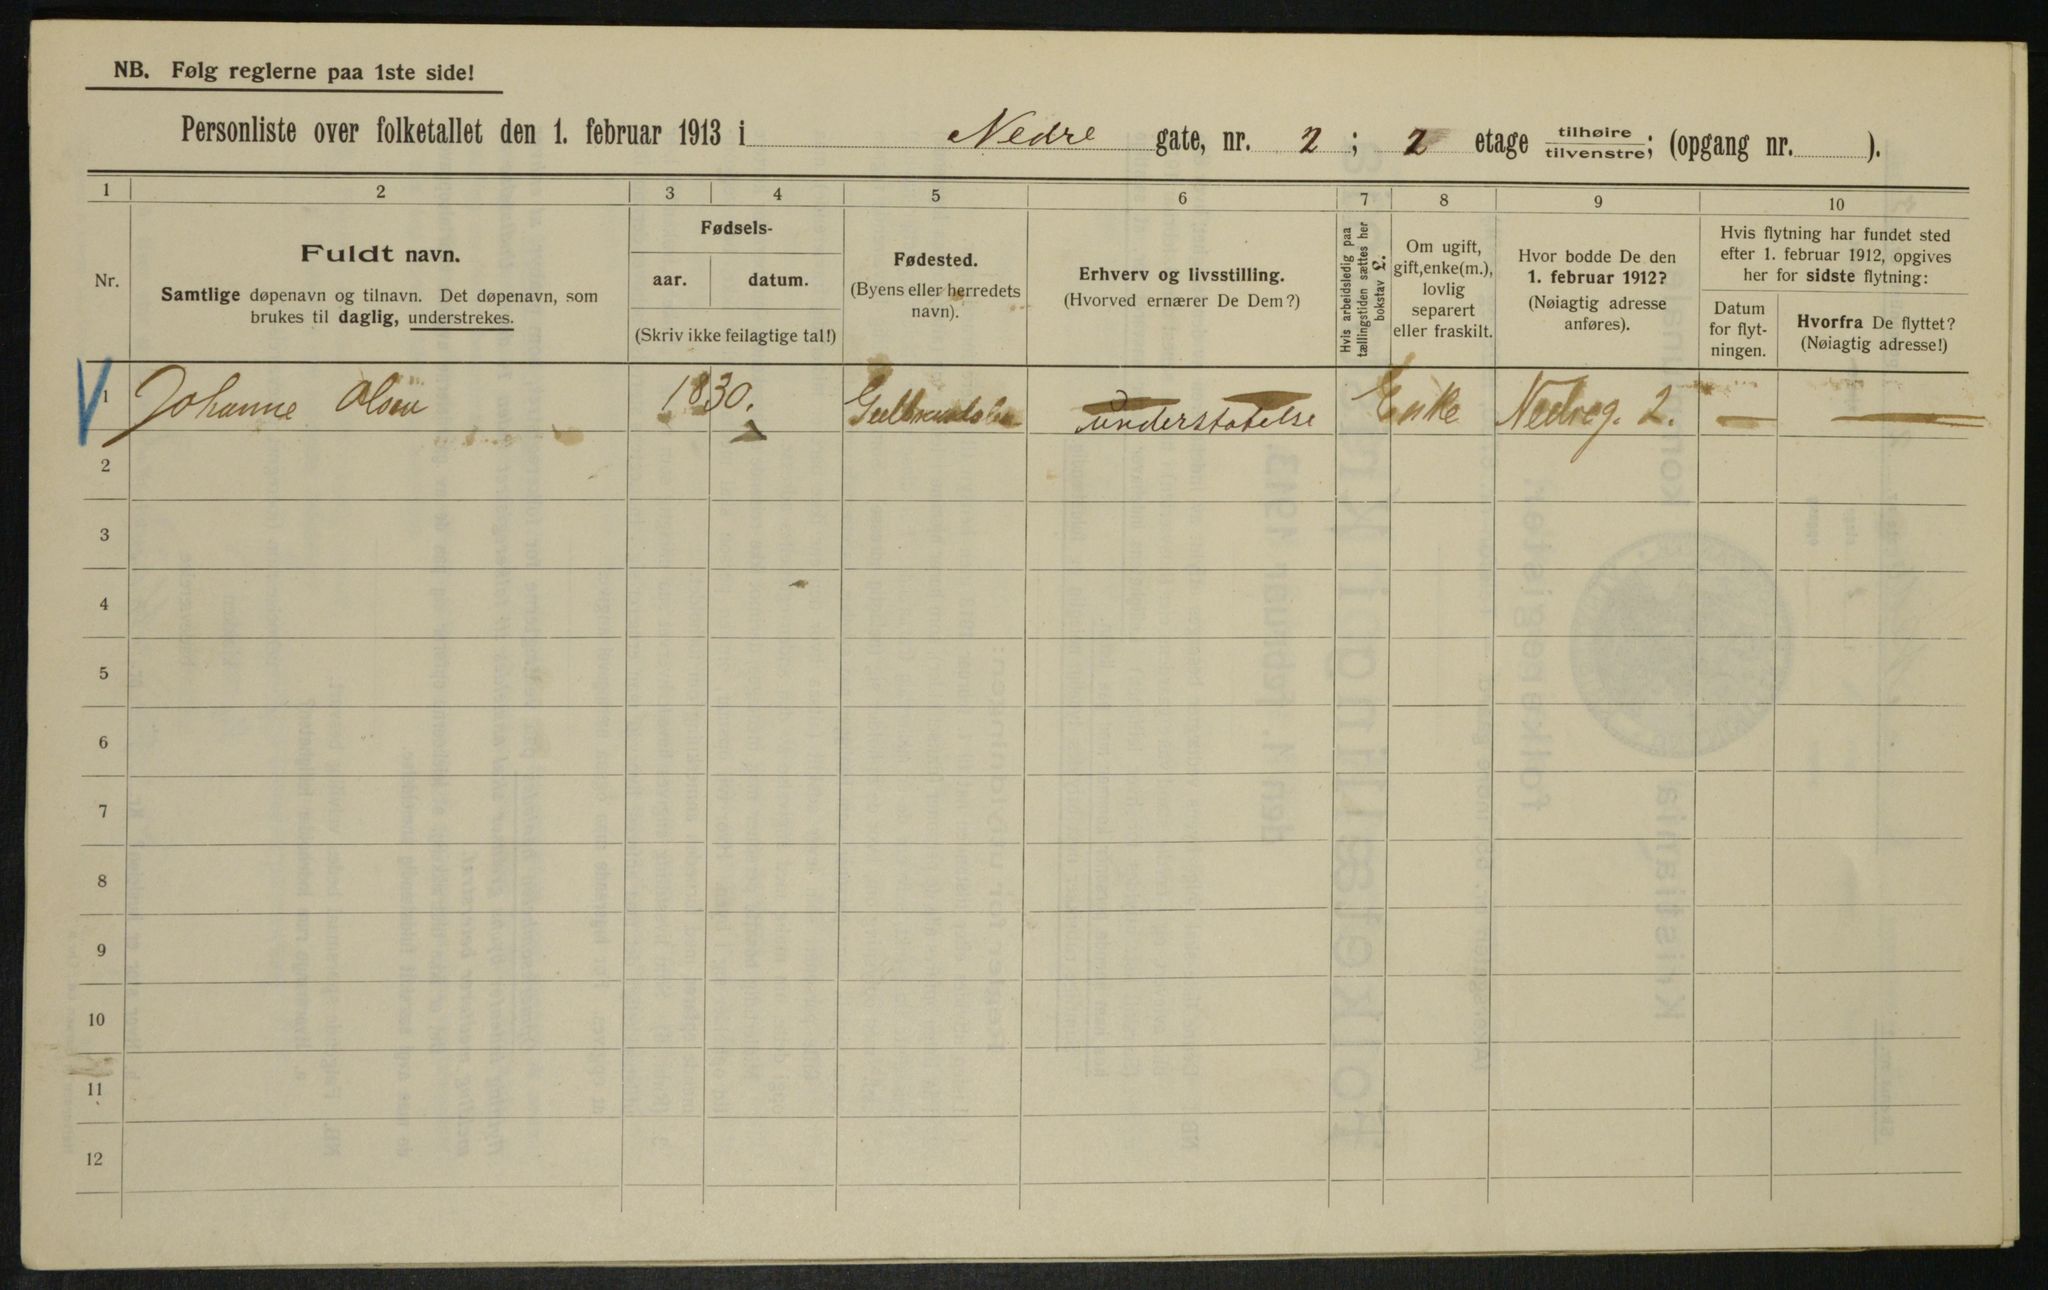 NB. Følg reglerne paa 1ste side!
Personliste over folketallet den 1. februar 1913 i Nedre gate, nr. 2; 2 etage tilhøire/tilvenstre; (opgang nr. ).
1 2 3 4 5 6 7 8 9 10
Nr.
Fuldt navn.
Samtlige døpenavn og tilnavn. Det døpenavn, som
brukes til daglig, understrekes.
Fødsels-
aar. datum.
(Skriv ikke feilagtige tal!)
Fødested.
(Byens eller herredets
navn).
Erhverv og livsstilling.
(Hvorved ernærer De Dem?)
Hvis arbeidsledig paa
tællingstiden sættes her
bokstav L.
Om ugift,
gift, enke(m.),
lovlig
separert
eller fraskilt.
Hvor bodde De den
1. februar 1912?
(Nøiagtig adresse
anføres).
Hvis flytning har fundet sted
efter 1. februar 1912, opgives
her for sidste flytning:
Datum
for flyt-
ningen.
Hvorfra De flyttet?
(Nøiagtig adresse!)
1 Johanne Olsen 1830. understøtelse Enke Nedreg. 2. — —
2
3
4
5
6
7
8
9
10
11
12